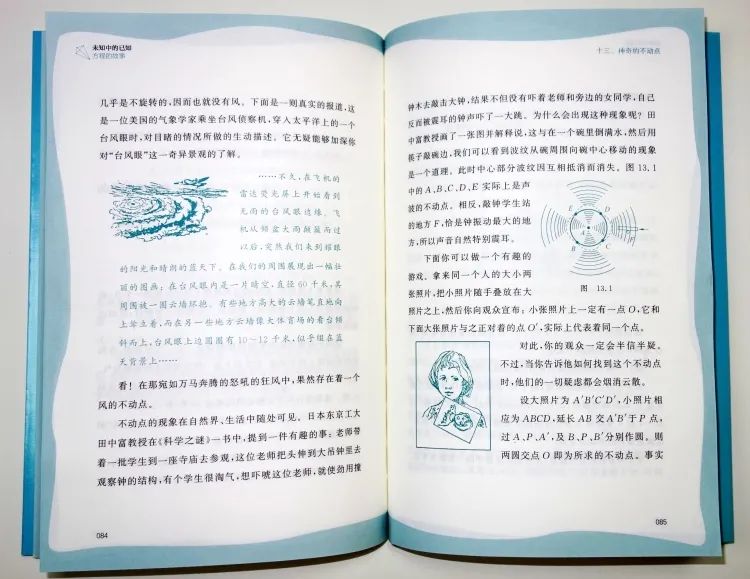 未知中的已知
方程的故事
几乎是不旋转的,因而也就没有风。下面是一则真实的报道,这
是一位美国的气象学家乘坐台风侦察机,穿入太平洋上的一个
台风眼时,对目睹的情况所做的生动描述。它无疑能够加深你
对“台风眼”这一奇异景观的了解。
……不久,在飞机的
雷达荧光屏上开始看到
无雨的台风眼边缘。飞
机从倾盆大雨颠簸而过
以后,突然我们来到耀眼
的阳光和晴朗的蓝天下。在我们的周围展现出一幅壮
丽的图画:在台风眼内是一片晴空,直径60千米,其
周围被一圈云墙环抱。有些地方高大的云墙笔直地向
上耸立着,而在另一些地方云墙像大体育场的看台倾
斜而上,台风眼上边圆圈有10~12千米,似乎缀在蓝
天背景上……
看!在那宛如万马奔腾的怒吼的狂风中,果然存在着一个
风的不动点。
不动点的现象在自然界、生活中随处可见。日本东京工大
田中富教授在《科学之谜》一书中,提到一件有趣的事:老师带
着一批学生到一座寺庙去参观,这位老师把头伸到大吊钟里去
观察钟的结构,有个学生很淘气,想吓唬这位老师,就使劲用撞
084
十三、神奇的不动点
钟木去敲击大钟,结果不但没有吓着老师和旁边的女同学,自己
反而被震耳的钟声吓了一大跳。为什么会出现这种现象呢?田
中富教授画了一张图并解释说,这与在一个碗里倒满水,然后用
筷子敲碗边,我们可以看到波纹从碗周围向碗中心移动的现象
是一个道理。此时中心部分波纹因互相抵消而消失。图 13.1
中的 A、B、C、D、E 实际上是声
波的不动点。相反,敲钟学生站
的地方 F,恰是钟振动最大的地
方,所以声音自然特别震耳。
E
D
A
F
B
C
图 13.1
下面你可以做一个有趣的
游戏。拿来同一个人的大小两
张照片,把小照片随手叠放在大
照片之上,然后你向观众宣布:小张照片上一定有一点 O,它和
下面大张照片与之正对着的点 O′,实际上代表着同一个点。
对此,你的观众一定会半信半疑。
不过,当你告诉他如何找到这个不动点
时,他们的一切疑虑都会烟消云散。
设大照片为 A′B′C′D′,小照片相
应为 ABCD,延长 AB 交 A′B′于 P 点,
过 A、P、A′,及 B、P、B′分别作圆。则
两圆交点 O 即为所求的不动点。事实
085